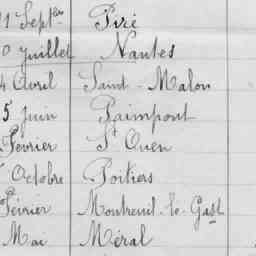 11 Septbre Piré
0 Juillet Nantes
4 Avril Saint-Malon
5 Juin Paimpont
Février St Ouen
Octobre Poitiers
Février Montreuil-le-Gast
Mai Méral